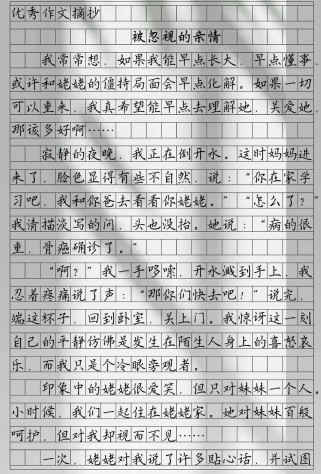 优秀作文摘抄
被忽视的亲情
我常常想，如果我能早点长大，早点懂事，
或许和姥姥的僵持局面会早点化解。如果一切
可以重来，我真希望能早点去理解她，关爱她，
那该多好啊……
寂静的夜晚，我正在倒开水。这时妈妈进
来了，脸色显得有些不自然，说：“你在家学
习吧，我和你爸去看看你姥姥。”“怎么了？”
我清描淡写的问，头也没抬。她说：“病的很
重，骨癌确诊了。”
“啊？”我一手哆嗦，开水溅到手上，我
忍着疼痛说了声：“那你们快去吧！”说完，
端这杯子，回到卧室，关上门。我惊讶这一刻
自己的平静仿佛是发生在陌生人身上的喜怒哀
乐，而我只是个冷眼旁观者。
印象中的姥姥很爱笑，但只对妹妹一个人。
小时候，我们一起住在姥姥家。她对妹妹百般
呵护，但对我却视而不见……
一次，姥姥对我说了许多贴心话，并试图